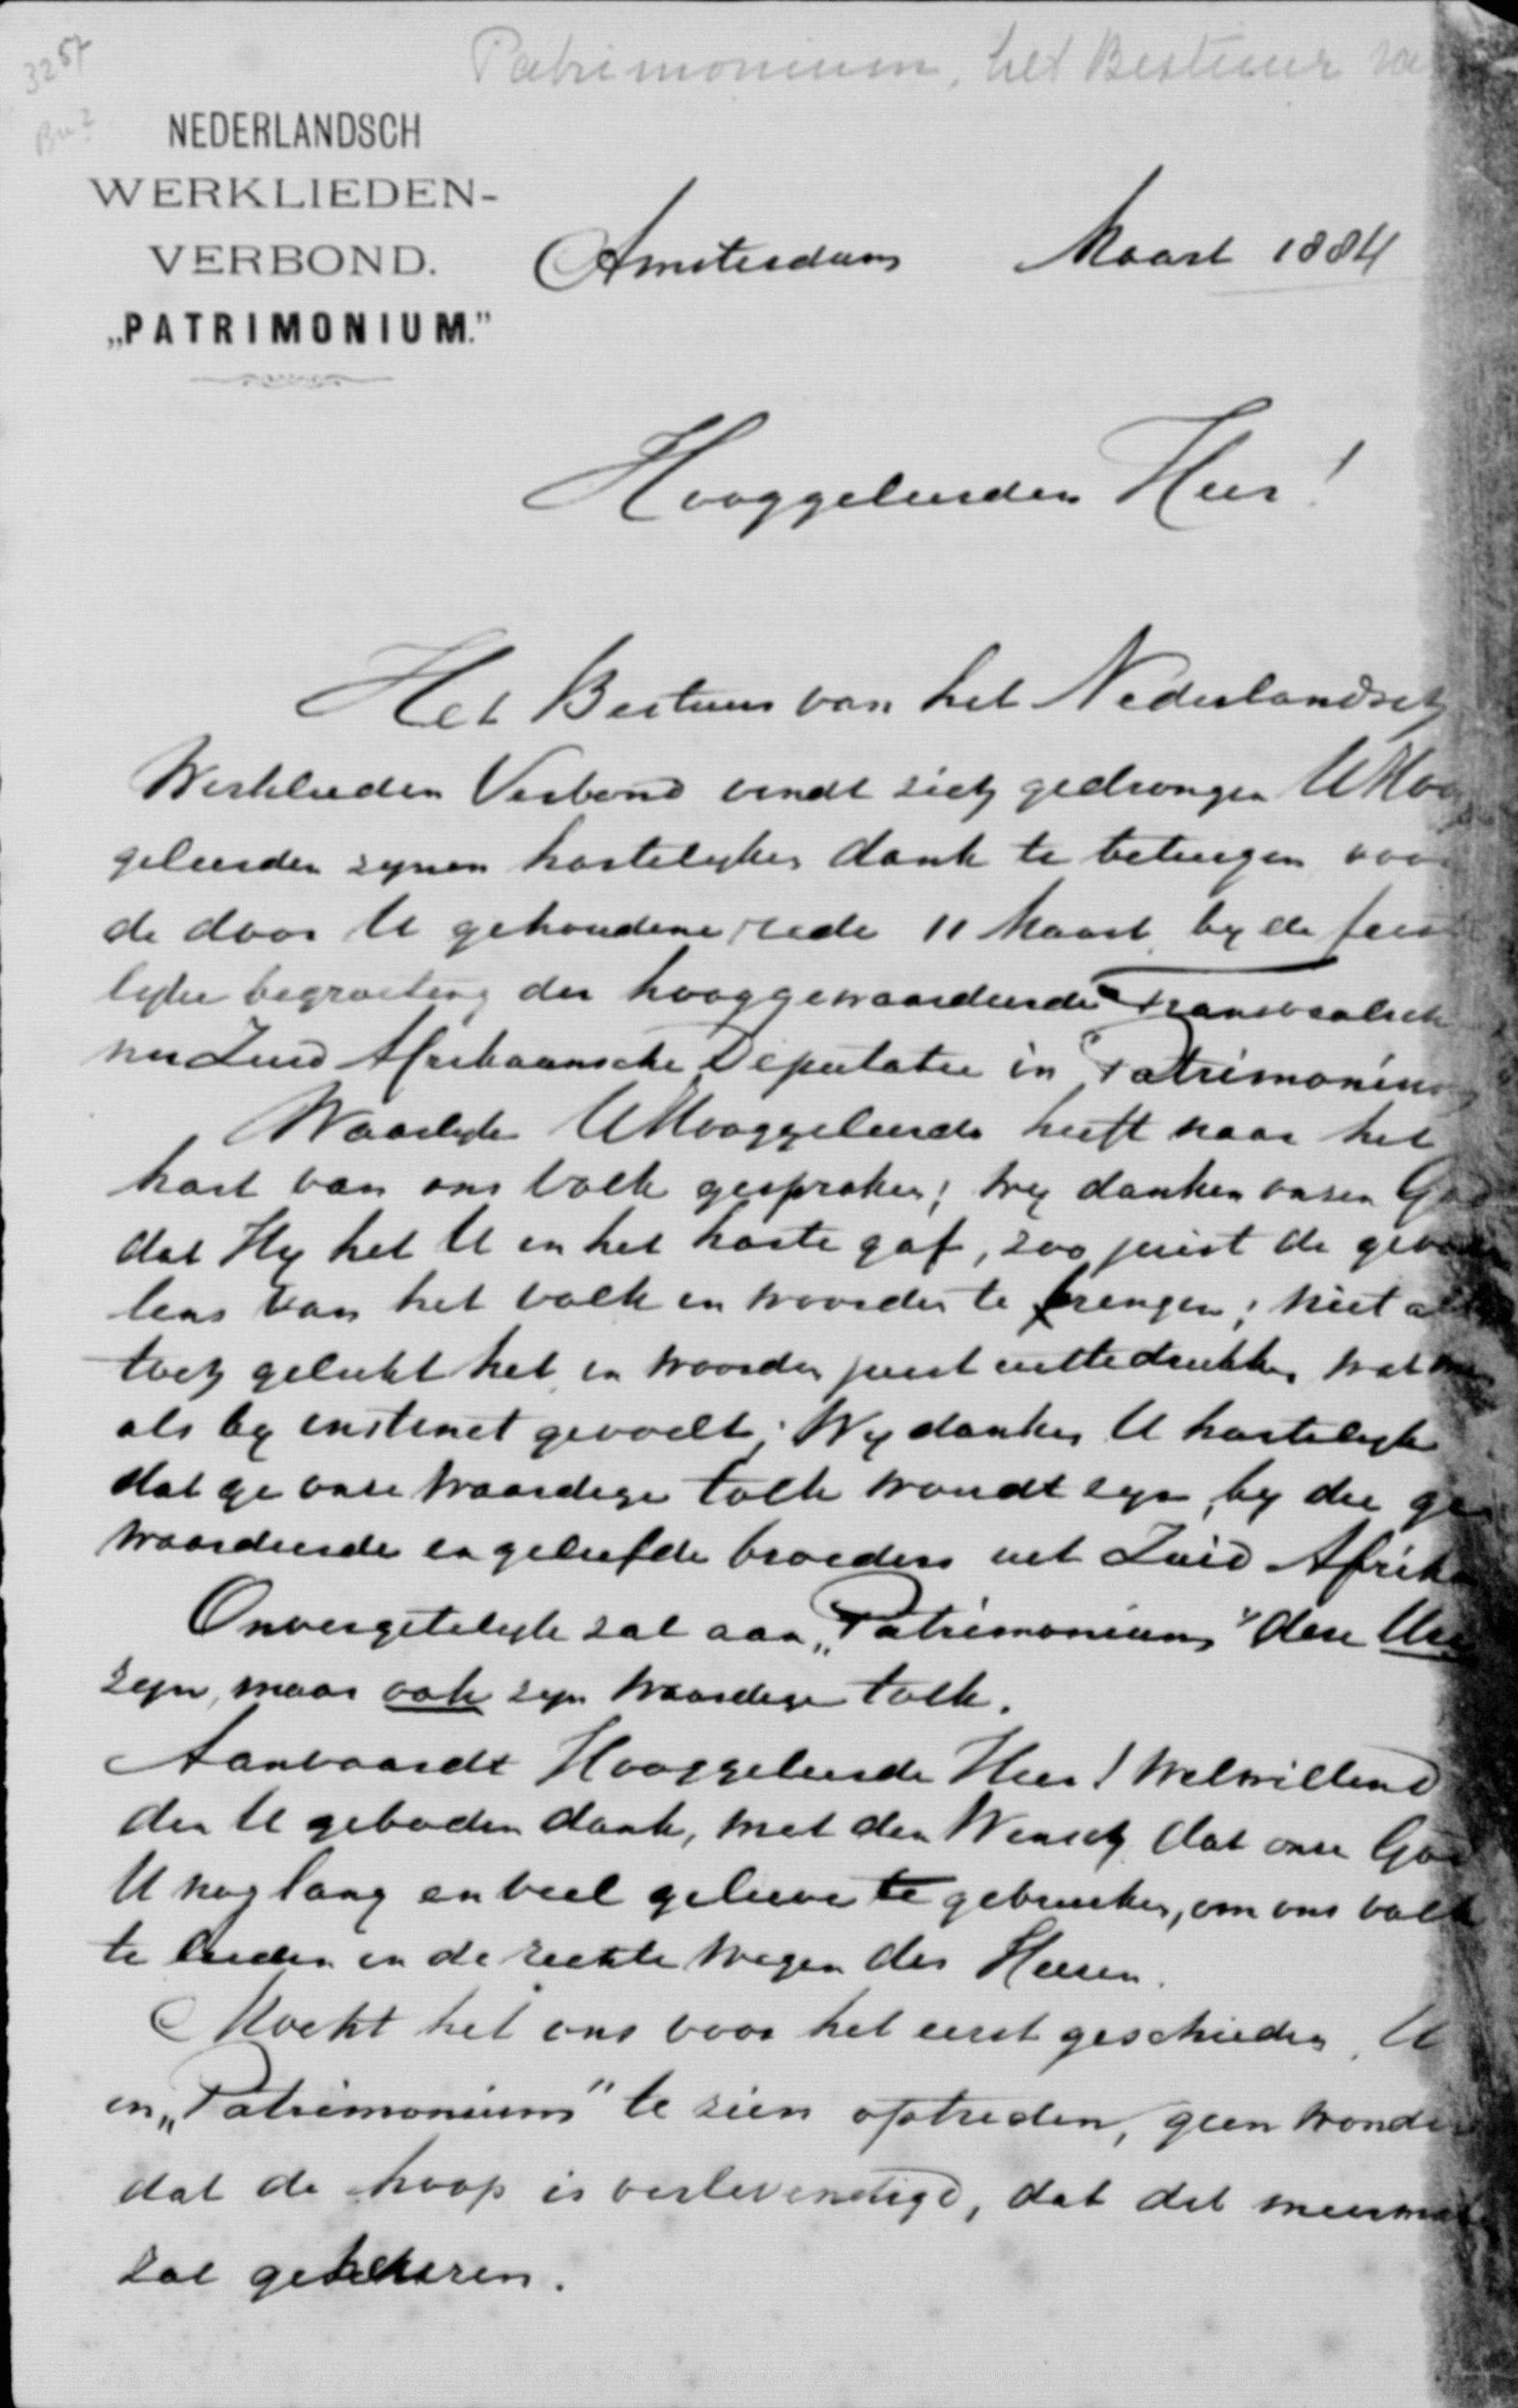 3257
Patrimonium, het Bestuur
NEDERLANDSCH
WERKLIEDEN-
VERBOND.
„PATRIMONIUM."
Amsterdam Maart 1884
Hooggeleerden Heer!
Het Bestuur van het Nederlandsch
Werklieden Verbond vindt zich gedrongen UHoog
geleerden zynen hartelyken dank te betuigen voor
de door U gehoudene rede 11 Maart by de feest
lyke begroeting der hooggewaardeerde Transvaalsche
nu Zuid Afrikaansche Deputatie in Patrimonium
Waarlyk UHooggeleerde heeft naar het
hart van ons volk gesproken; wy danken onzen God
dat Hy het U in het harte gaf, zoo juist de gevoe
lens van het volk in woorden te brengen; niet al
toch gelukt het in woorden juist uittedrukken wat men
als by instinct gevoelt; Wy danken U hartelyk
dat ge onze waardige tolk woudt zyn, by die ge
waardeerde en geliefde broeders uit Zuid Afrika
Onvergetelyk zal aan „Patrimonium" deze Ure
zyn, maar ook zyn waardige tolk.
Aanvaardt Hooggeleerde Heer! welwillend
den U geboden dank, met den Wensch dat onze God
U nog lang en veel gelieve te gebruiken, om ons volk
te leiden in de rechte wegen des Heeren.
Mocht het ons voor het eerst geschieden, U
in „Patrimonium" te zien optreden, geen wonder
dat de hoop is verlevendigd, dat dit meermale
zal gebeuren.